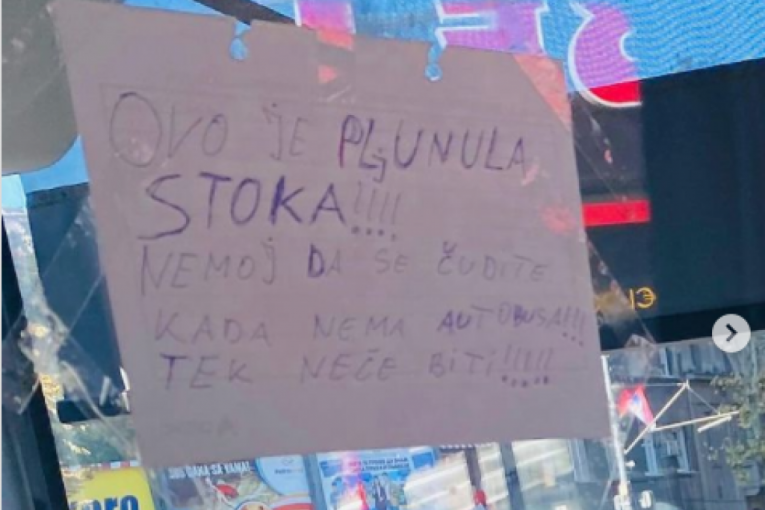 OVO JE PLjUNULA
STOKA!!!!
NEMOJ DA SE ČUDITE
KADA NEMA AUTOBUSA!!!
TEK NEĆE BITI!!!!!
DANA SA VAMA!